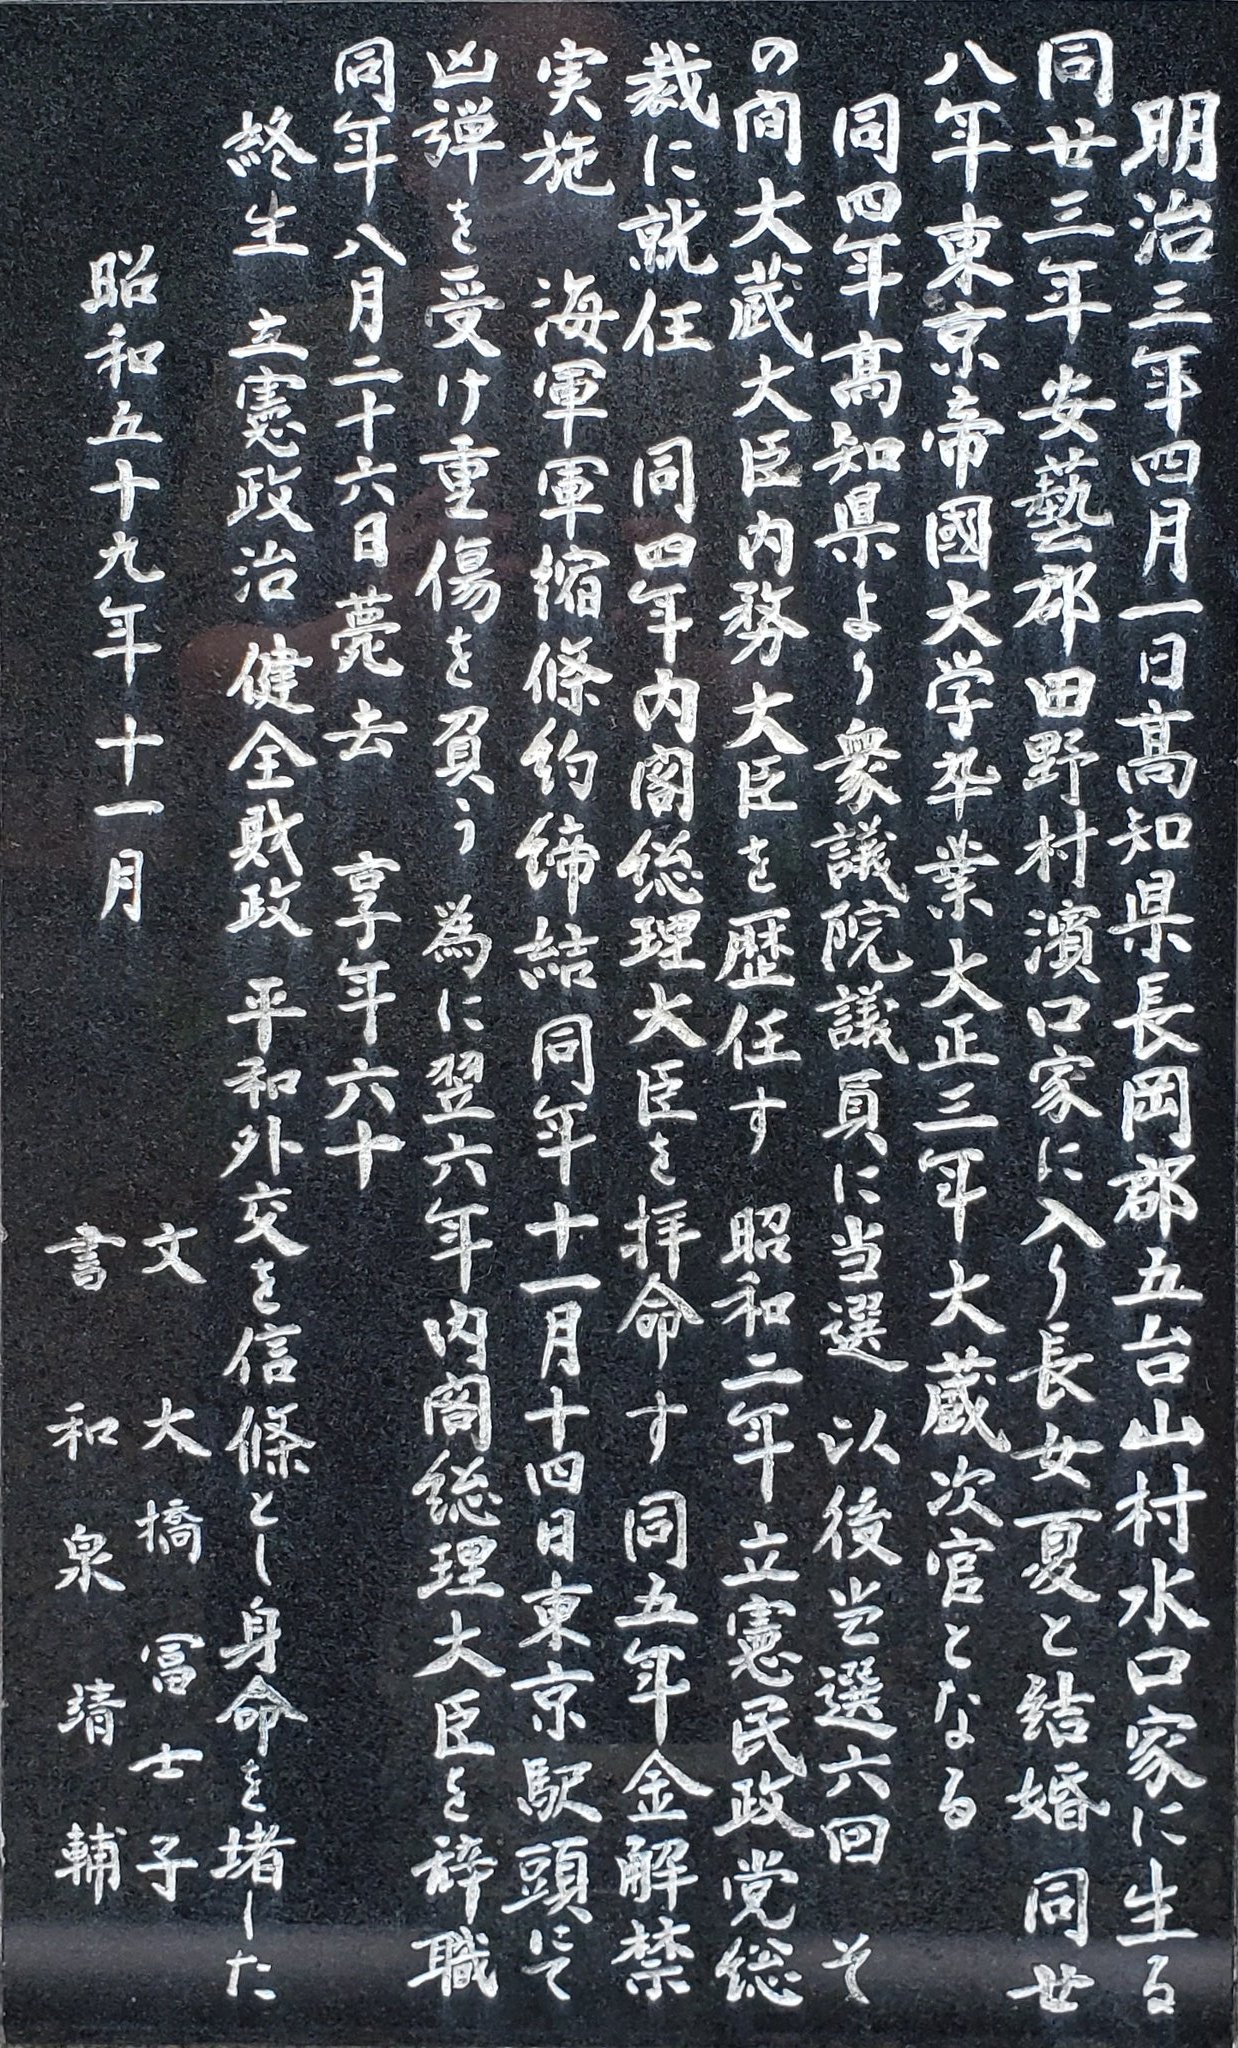 明治三年四月一日髙知県長岡郡五台山村水口家に生る
同廿三年 安藝郡田野村濱口家に入り長女夏と結婚 同廿
八年東京帝國大学卒業 大正三年大蔵次官となる
同四年髙知県より衆議院議員に当選 以後当選六回 そ
の間大蔵大臣内務大臣を歴任す 昭和二年 立憲民政党総
裁に就任 同四年内閣総理大臣を拝命す 同五年金解禁
実施 海軍軍縮條約締結 同年十一月十四日東京駅頭にて
凶弾を受け重傷を負う 為に翌六年内閣総理大臣を辞職
同年八月二十六日薨去 享年六十
終生 立憲政治 健全財政 平和外交を信條とし身命を堵した
昭和五十九年十一月
文 大橋冨士子
書 和泉清輔